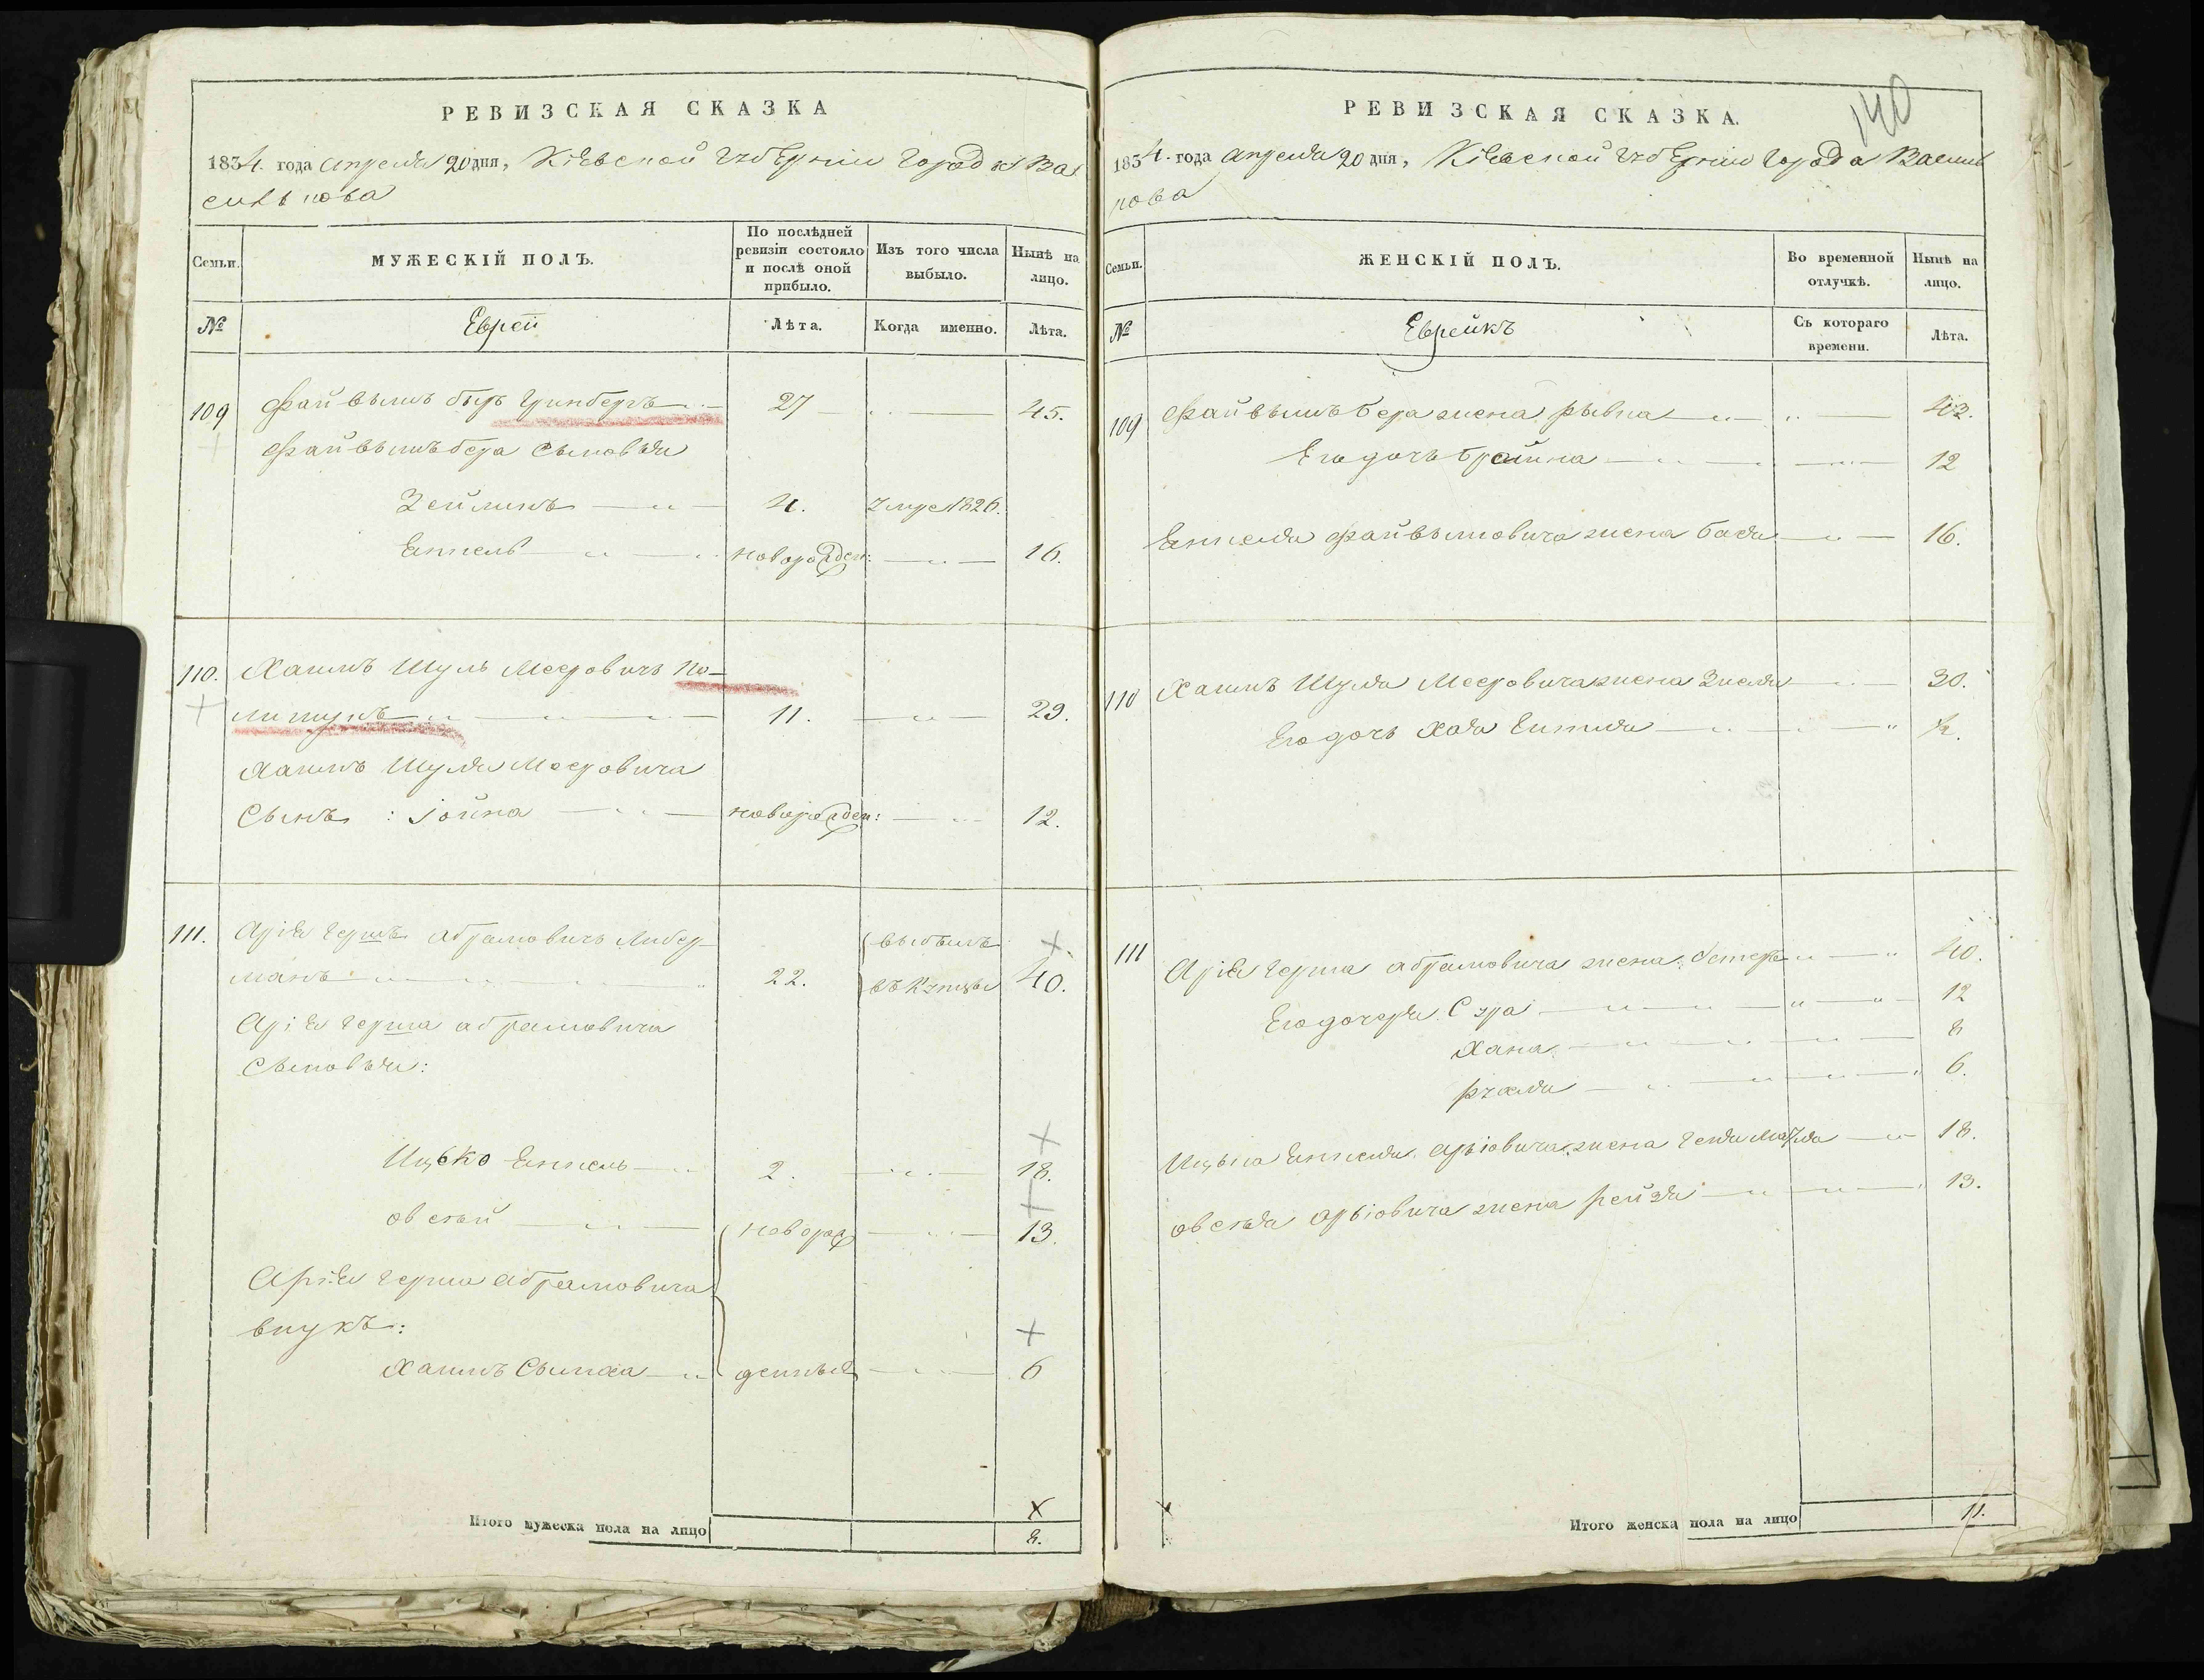 РЕВИЗСКАЯ СКАЗКА
1834. года апреля 20 дня, Кіевской губерніи города Ва
силькова
Семьи.
МУЖЕСКІЙ ПОЛЪ.
По послѣдней ревизіи состояло и послѣ оной прибыло.
Изъ того числа выбыло.
Нынѣ на лицо.
№
Еврей
Лѣта.
Когда именно.
Лѣта.
109 Файвышъ беръ Гринбергъ 27 45.
Файвышъ бера сыновья
Зейликъ 4. 1826.
Еккель новорожден: 16.
110. Хаимъ Шуль Мееровичъ По-
11. 29.
Хаимъ Шуля Мееровича
сынъ: Іойна новорожден: 12.
111. Арія Гершъ Абрамовичъ Либер- выбылъ
манъ 22. въ купцы 40.
Арія Герша Абрамовича
сыновья:
Ицько Еккель 2. 18.
Овсей новорож 13.
Арія Герша Абрамовича
внукъ:
Хаимъ Сымха денные 6
Итого мужеска пола на лицо 8.
140
РЕВИЗСКАЯ СКАЗКА.
1834. года апреля 20 дня, Кіевской губерніи города Василь
кова
Семьи.
ЖЕНСКІЙ ПОЛЪ.
Во временной отлучкѣ.
Нынѣ на лицо.
№
Еврейкъ
Съ котораго времени.
Лѣта.
109 Файвышъ бера жена Рывка 43.
Его дочь Брайна 12
Еккеля Файвышовича жена Бася 16.
110 Хаимъ Шуля Мееровича жена Зисля 30.
Его дочь Хая Ентля ½.
111 Арія Герша Абрамовича жена: Естеръ 40.
Его дочери Сура 12
Хана 8
Рухля 6.
Ицька Еккеля Арьіовича жена Геня Малка 18.
Овсея Арьіовича жена Рейзя 13.
Итого женска пола на лицо 11.